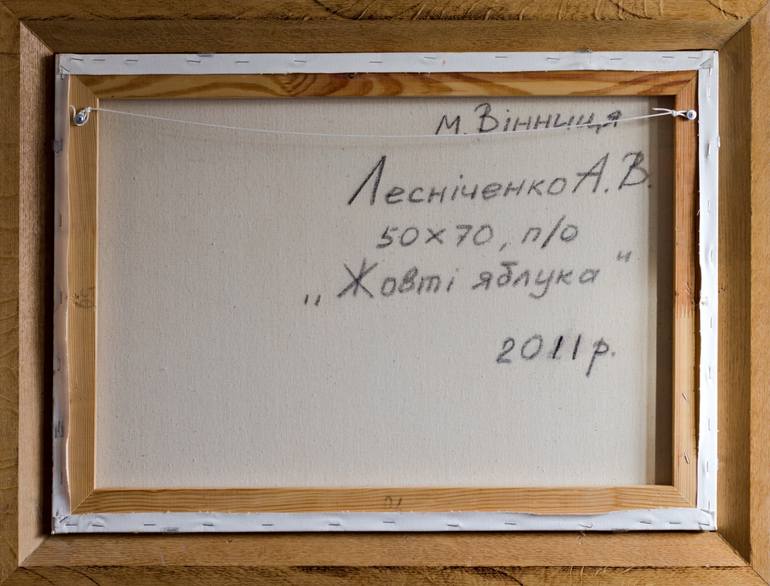 м. Вінниця
Лесніченко А. В.
50х70, п/о
„Жовті яблука"
2011 р.